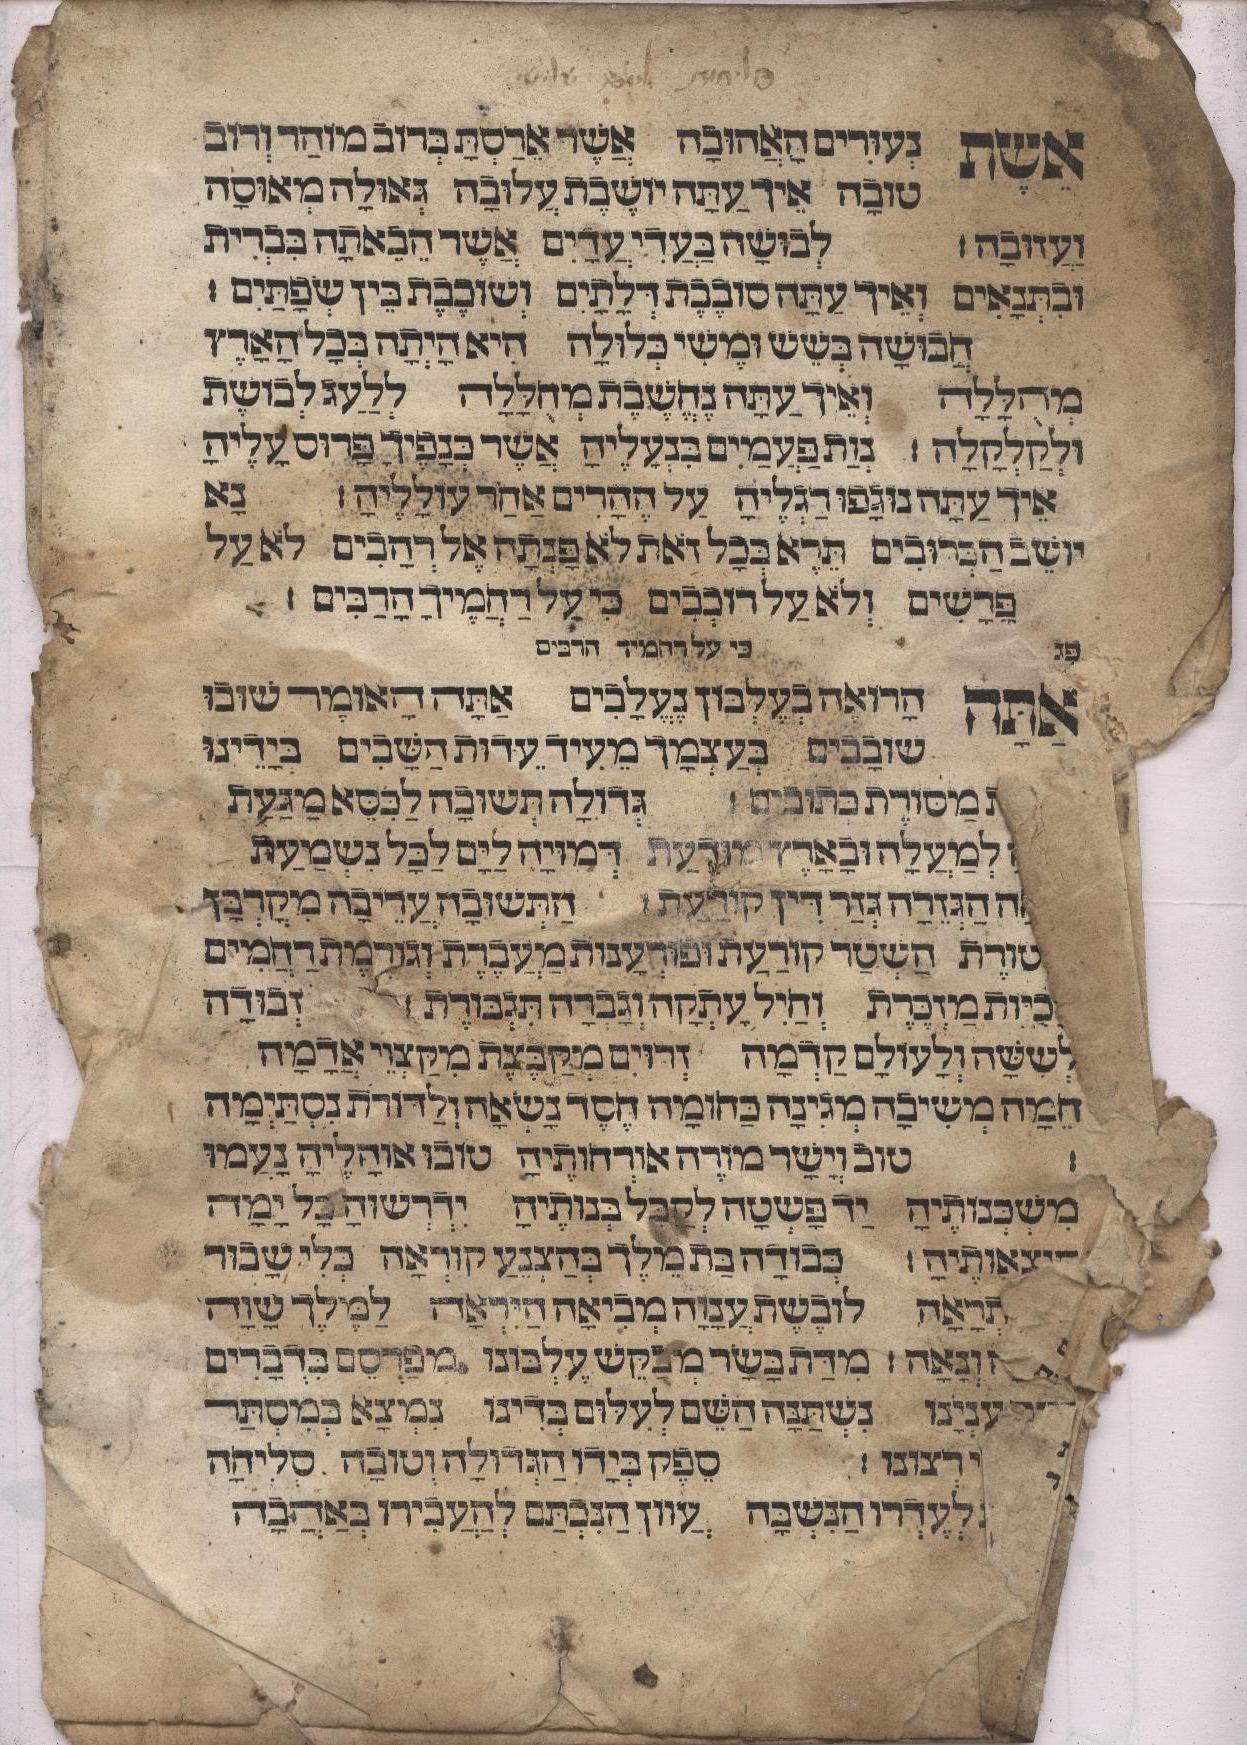 סליחות
אֵשֶׁת נְעוּרִים הָאֲהוּבָה אֲשֶׁר אֵרַסְתָּ בְּרוֹב מוֹהַר וְרוֹב
טוֹבָה אֵיךְ עַתָּה יוֹשֶׁבֶת עֲלוּבָה גְּאוּלָה מְאוּסָה
וַעֲזוּבָה׃ לְבוּשָׁה בַּעֲדִי עֲדָיִים אֲשֶׁר הֵבֵאתָה בִּבְרִית
וּבִתְנָאִים וְאֵיךְ עַתָּה סוֹבֶבֶת דְּלָתָיִם וְשׁוֹכֶבֶת בֵּין שְׂפָתַּיִם׃
חֲבוּשָׁה בְּשֵׁשׁ וּמֶשִׁי כְּלוּלָה הִיא הָיְתָה בְּכָל הָאָרֶץ
מְהֻלָּלָה וְאֵיךְ עַתָּה נֶחְשֶׁבֶת מְחֻלָּלָה לְלַעַג לְבוֹשֶׁת
וּלְקַלְקָלָה׃ נְוַת פַּעֲמַיִם בִּנְעָלֶיהָ אֲשֶׁר כְּנָפֶיךָ פָּרוּס עָלֶיהָ
אֵיךְ עַתָּה נוּגְּפוּ רַגְלֶיהָ עַל הֶהָרִים אַחַר עוֹלָלֶיהָ׃ נָא
יוֹשֵׁב הַכְּרוּבִים תֵּרָא בְּכָל זֹאת לֹא פָּנְתָה אֶל רְהָבִים לֹא עַל
פָּרָשִׁים וְלֹא עַל רוֹכְבִים כִּי עַל רַחֲמֶיךָ הָרַבִּים׃
פג כי על רחמיך הרבים
אַתָּה הָרוֹאֶה בְּעֶלְבּוֹן נֶעֱלָבִים אַתָּה הָאוֹמֶר שׁוּבוּ
שׁוֹבָבִים בְּעַצְמָךְ מֵעִיד עֵדוּת הַשָּׁבִים בְּיָדֵינוּ
מַסּוֹרֶת כְּתוּבִים׃ גְּדוֹלָה תְּשׁוּבָה לַכִּסֵּא מַגַּעַת
לְמַעְלָה וּבָאָרֶץ מוּדַעַת דְּמוּיָה לַיָּם לַכָּל נִשְׁמַעַת
הַגְּזֵרָה גְּזַר דִּין קוֹרַעַת׃ הַתְּשׁוּבָה עֲרֵיבָה מִקָּרְבָּן
הַשְּׁטָר קוֹרַעַת וּפוּרְעָנוּת מַעֲבֶרֶת וְגוֹרֶמֶת רַחֲמִים
מַזְכֶּרֶת וְחַיִל עָתְקָה וְגָבְרָה תִּגְבּוֹרֶת׃ זְבוּדָה
לְשִׁשָּׁה וְלָעוֹלָם קָדְמָה זְרוּיִם מְקַבֶּצֶת מִקַּצְוֵי אֲדָמָה
חֵמָה מְשִׁיבָה מְגִינָה כַּחוֹמָה חֶסֶד נָשְׂאָה וְלַדּוֹרֹת נִסְתַּיְמָה
׃ טוֹב וְיָשָׁר מוֹרֶה אוֹרְחוֹתֶיהָ טוֹבוּ אוֹהָלֶיהָ נָעֵמוּ
מִשְׁכְּנוֹתֶיהָ יַד פָּשְׁטָה לְקַבֵּל בְּנוֹתֶיהָ יִדְרְשׁוּהָ כָּל יָמָהּ
תּוֹצְאוֹתֶיהָ׃ כְּבוּדָּה בַּת מֶלֶךְ בְּהַצְנֵעַ קוֹרְאָה כְּלִי שָׁבוּר
תְרָאָה לוֹבֶשֶׁת עֲנָוָה מְבִיאָה הַיִּרְאָה לַמֶּלֶךְ שָׁוָה
וְנָאָה׃ מִדַּת בָּשָׂר מְבַקֵּשׁ עֶלְבּוֹנוֹ מְפַרְסֵם בִּדְבָרִים
עִנְיָנוֹ נִשְׁתַּנָּה הַשֵּׁם לְעַלּוּם בְּדִינוֹ נִמְצָא בְּמִסְתַּר
רְצוֹנוֹ׃ סֵפֶק בְּיָדוֹ הַגְּדוֹלָה וְטוֹבָה סְלִיחָה
לְעֶדְרוֹ הַנִּשְׁבָּה עָווֹן הַנִּכְתָּם לְהַעֲבִירוֹ בְּאַהֲבָה